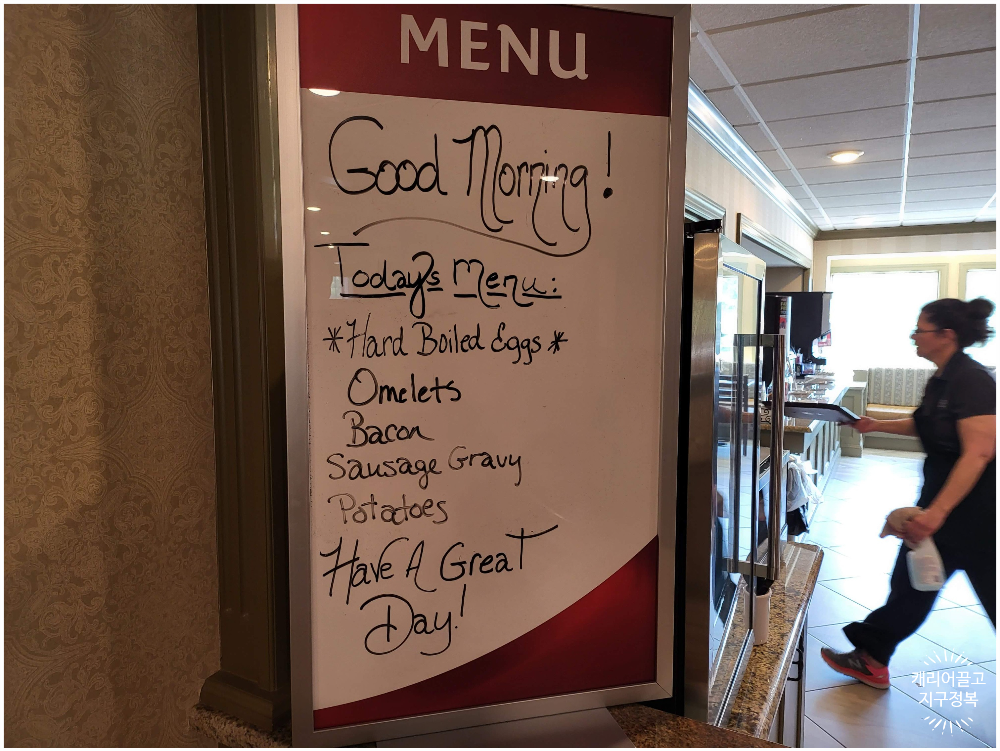 MENU
Good Morning!
Today's Menu:
*Hard Boiled Eggs*
Omelets
Bacon
Sausage Gravy
Potatoes
Have A Great
Day!
캐리어끌고
지구정복